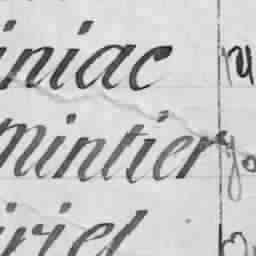 iniac
mintier
iriel